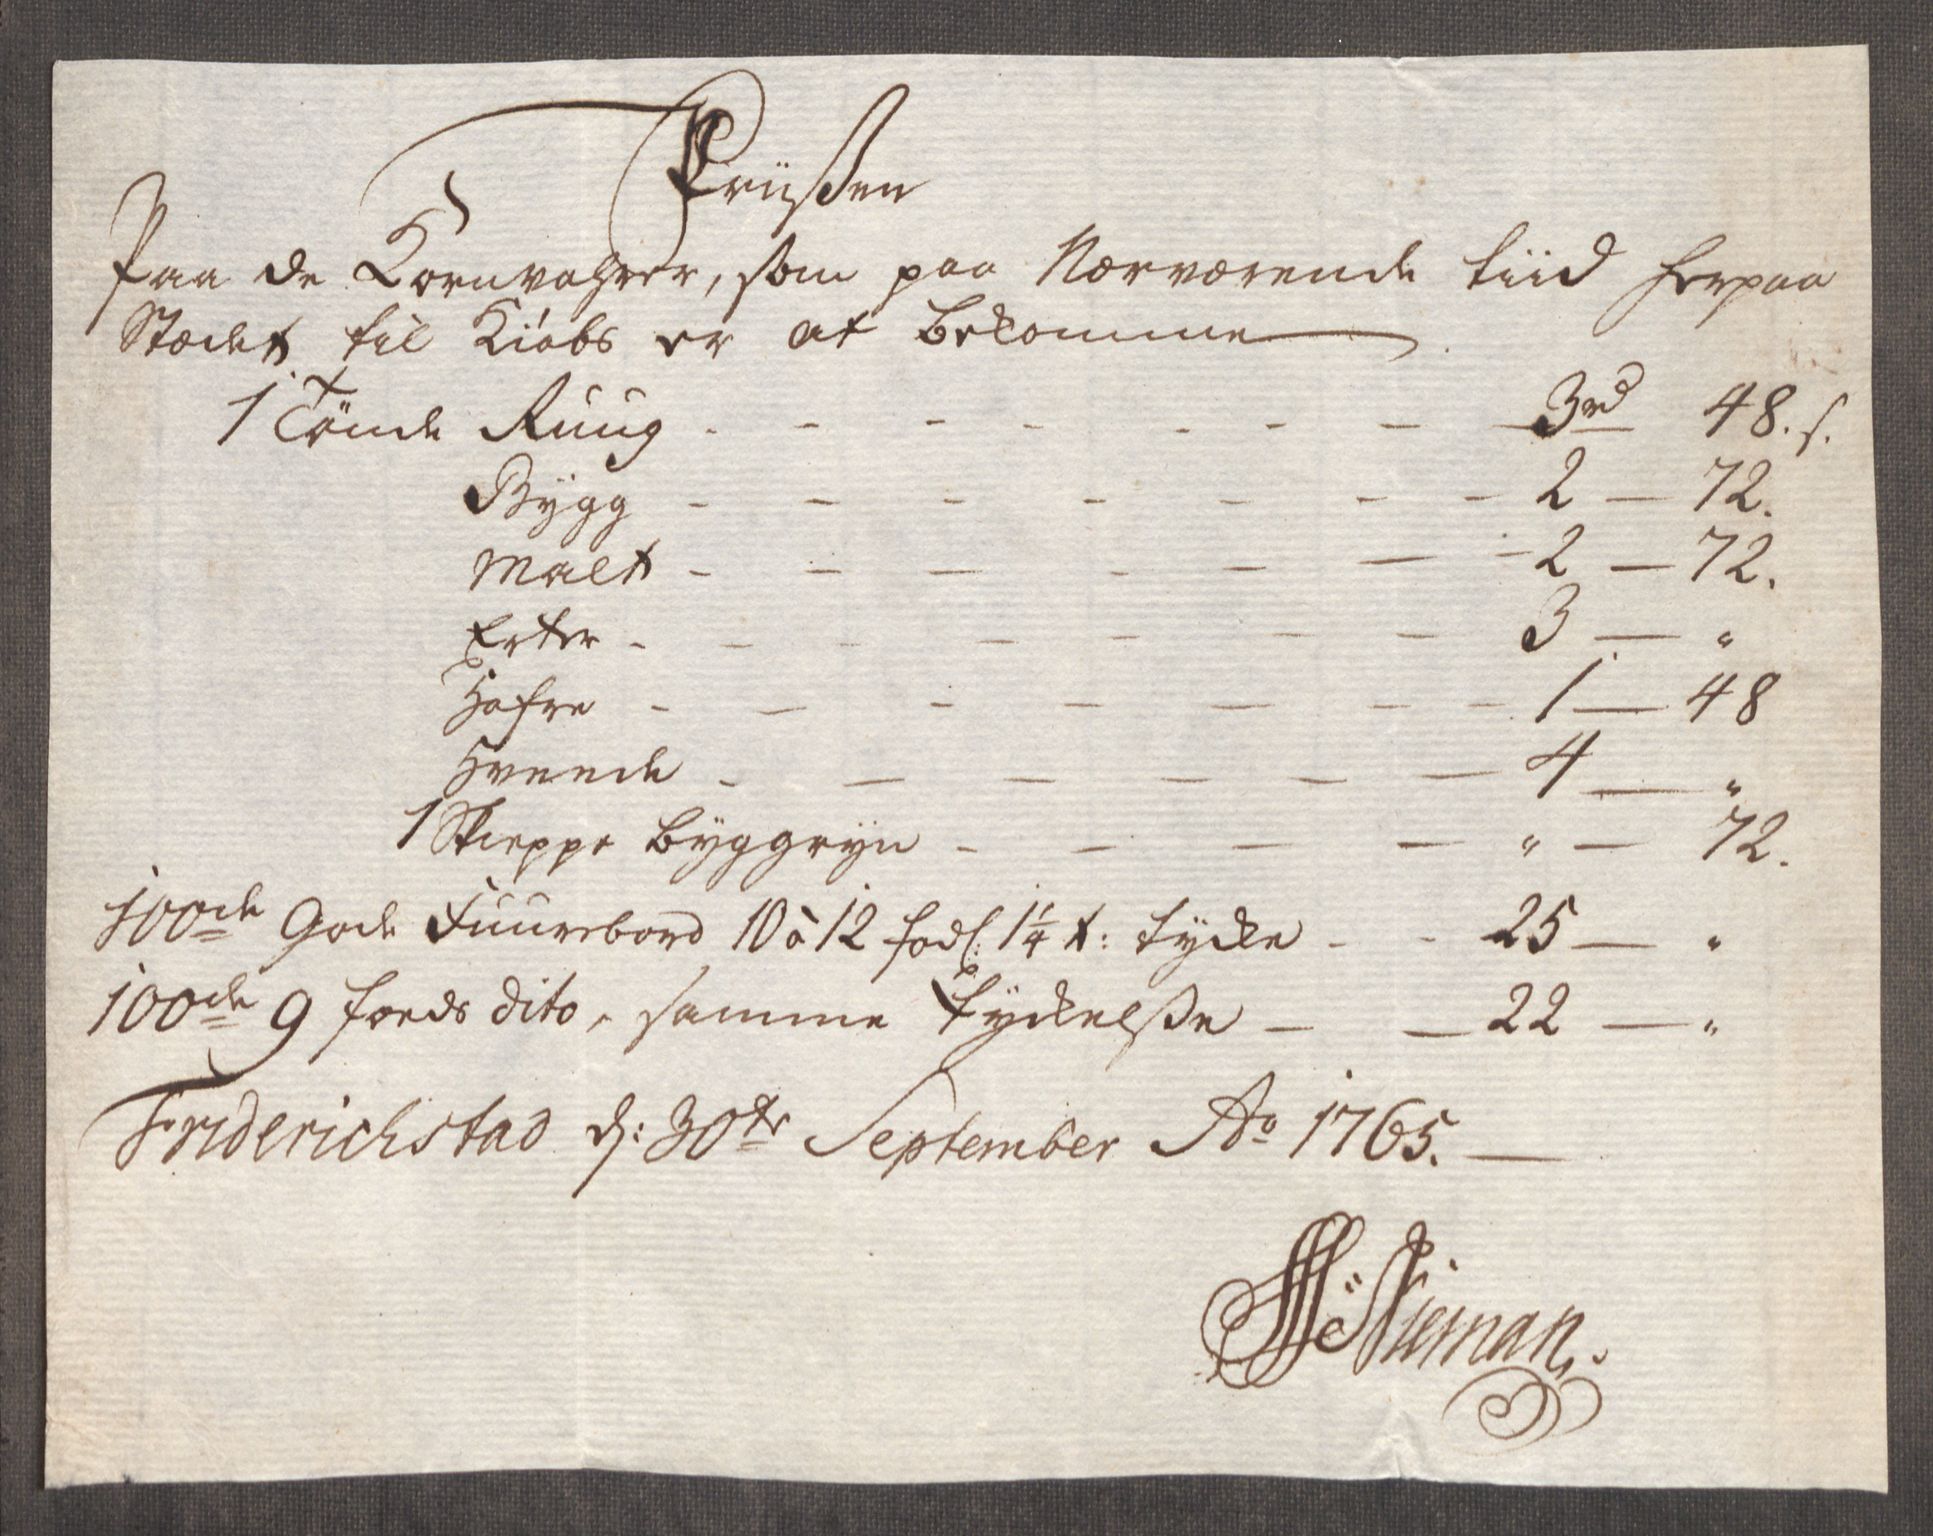 Priißen
Paa de Kornvahrer, som paa Nærværende tiid herpaa
Stædet til Kiøbs er at bekomme
1 Tönde Ruug - - - - - - - 3rd 48. s.
Bÿgg - - - - - - - 2 — 72.
Malt - - - - - - - 2 — 72.
Erter - - - - - - - 3 — "
Hafre - - - - - - - 1 — 48
Hveede - - - - - - 4 — "
1 Skieppe Bÿggrÿn - - - - " — 72.
100de Gode Fuurebord 10 à 12 fod l: 1 1/4 t: tÿcke - - 25 — "
100de 9 foeds dito, samme tÿckelße - - 22 — "
Friderichstad d: 30te September Ao 1765.
Nieman.